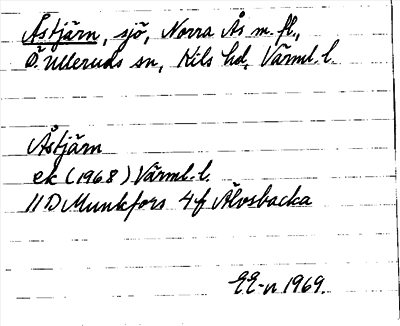 Åstjärn, sjö, Norra Ås m. fl.,
Ö. Ulleruds sn, Kils hd, Värml. l.
Åstjärn
ek (1968) Värml. l.
11D Munkfors 4f Älvsbacka
EE-n 1969.